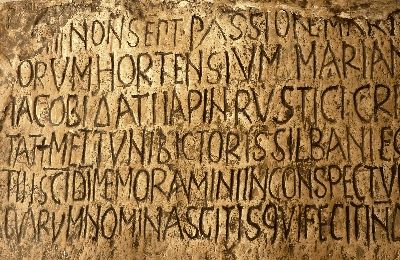 NONSEPT PASSIONE MART
ORVMHORTENSIVM MARIAN
IACOBI DATI IAPIN RVSTICI CRI
TAT+METTVNI BICTORIS SILBANI EG
TII+SCI DI MEMORAMINI IN CONSPECTV
QVARVM NOMINA SCITIS QVI FECIT IN